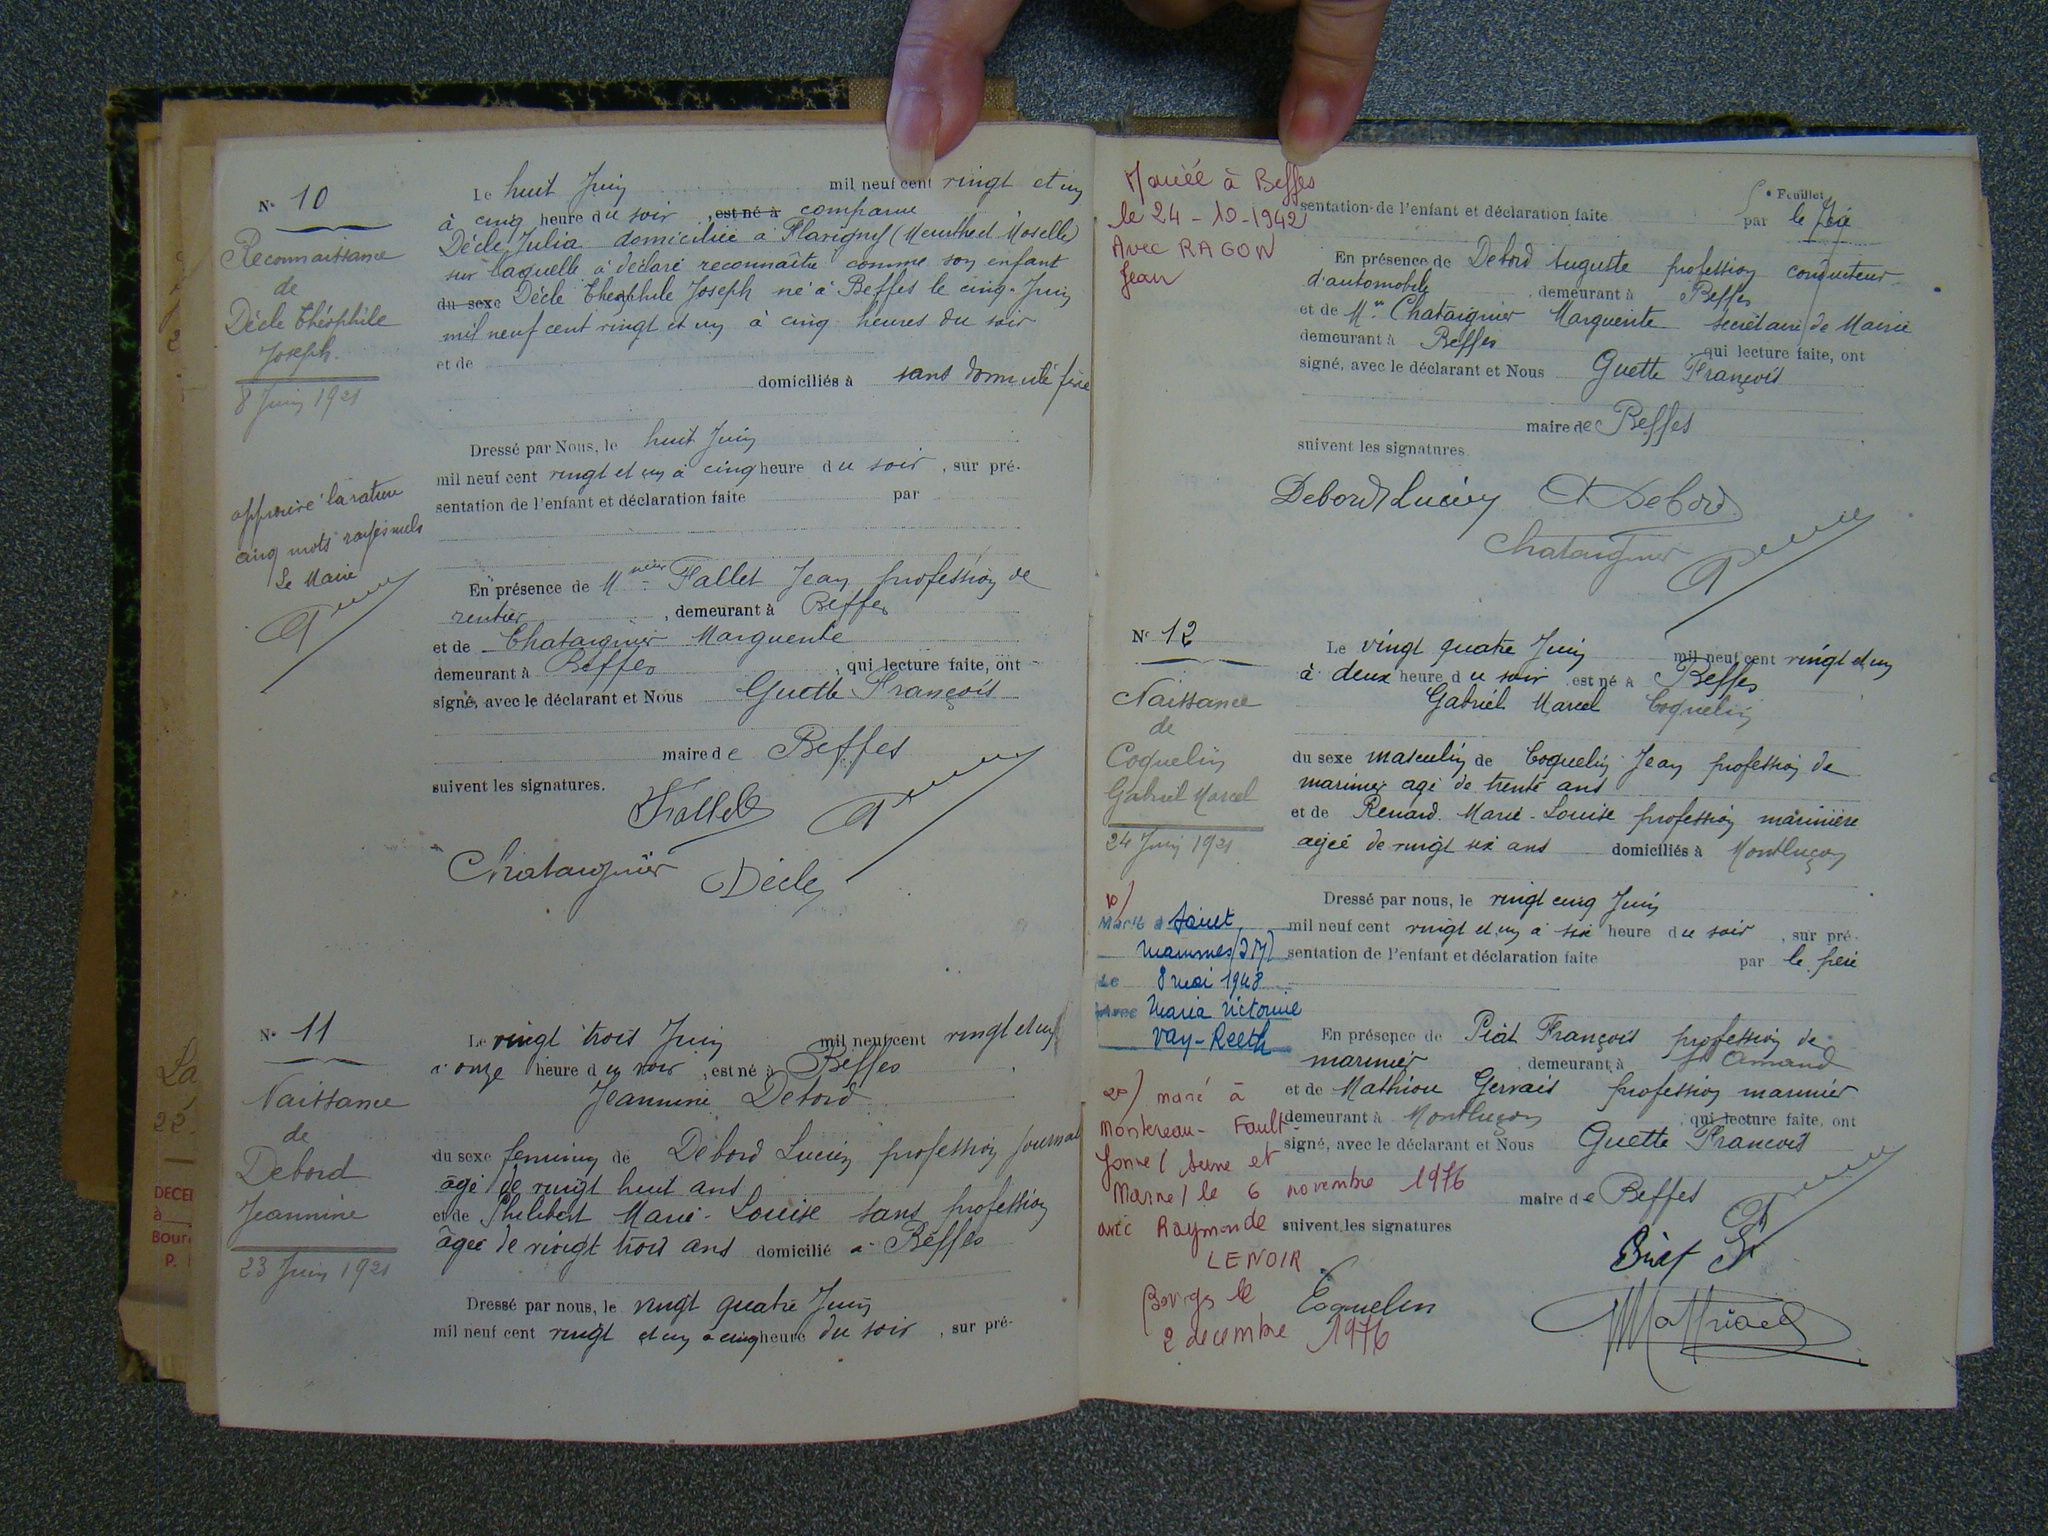 N° 10
Reconnaissance
de
Dècle Théophile
Joseph.
8 Juin 1921
approuvé la rature
cinq mots rayés nuls
Le Maire
Le huit Juin mil neuf cent vingt et un
à cinq heure du soir, est né à comparue
Dècle Julia domiciliée à Flavigny (Meurthe et Moselle)
sur laquelle a déclaré reconnaître comme son enfant
du sexe Dècle Théophile Joseph né à Beffes le cinq Juin
mil neuf cent vingt et un à cinq heures du soir
et de
domiciliés à sans domicile fixe
Dressé par Nous, le huit Juin
mil neuf cent vingt et un à cinq heure du soir, sur pré-
sentation de l'enfant et déclaration faite par
En présence de Mr Fallet Jean profession de
rentier, demeurant à Beffes
et de Chataignier Marguerite
demeurant à Beffes, qui lecture faite, ont
signé, avec le déclarant et Nous Guette François
maire de Beffes
suivent les signatures.
Fallet
Chataignier Dècle
N° 11
Naissance
de
Debord
Jeannine
23 Juin 1921
Le vingt trois Juin mil neuf cent vingt et un
à onze heure du soir, est né à Beffes
Jeannine Debord
du sexe feminin de Debord Lucien profession journal
âgé de vingt huit ans
et de Philibert Marie-Louise sans profession
âgée de vingt trois ans domicilié à Beffes
Dressé par nous, le vingt quatre Juin
mil neuf cent vingt et un à cinq heure du soir, sur pré-
Mariée à Beffes
le 24-10-1942
Avec RAGON
Jean
5e Feuillet
sentation de l'enfant et déclaration faite par le père
En présence de Debord Auguste profession conducteur
d'automobile, demeurant à Beffes
et de Me Chataignier Marguerite secrétaire de Mairie
demeurant à Beffes, qui lecture faite, ont
signé, avec le déclarant et Nous Guette François
maire de Beffes
suivent les signatures.
Debord Lucien A Debord
Chataignier
N° 12
Naissance
de
Coquelin
Gabriel Marcel
24 Juin 1921
1°/
Marié à Saint
Mammes (S M)
Le 8 mai 1948
Avec Maria Victorine
Van-Reeth
2°/ marié à
Montereau-Fault-
Yonne (Seine et
Marne) le 6 novembre 1976
avec Raymonde
LENOIR
Bourges le
2 decembre 1976
Le vingt quatre Juin mil neuf cent vingt et un
à deux heure du soir est né à Beffes
Gabriel Marcel Coquelin
du sexe masculin de Coquelin Jean profession de
marinier agé de trente ans
et de Renard Marie-Louise profession marinière
agée de vingt six ans domiciliés à Montluçon
Dressé par nous, le vingt cinq Juin
mil neuf cent vingt et un à six heure du soir, sur pré-
sentation de l'enfant et déclaration faite par le père
En présence de Piat François profession de
marinier, demeurant à St Amand
et de Mathiou Gervais profession marinier
demeurant à Montluçon, qui lecture faite, ont
signé, avec le déclarant et Nous Guette Francois
maire de Beffes
suivent les signatures
Coquelin